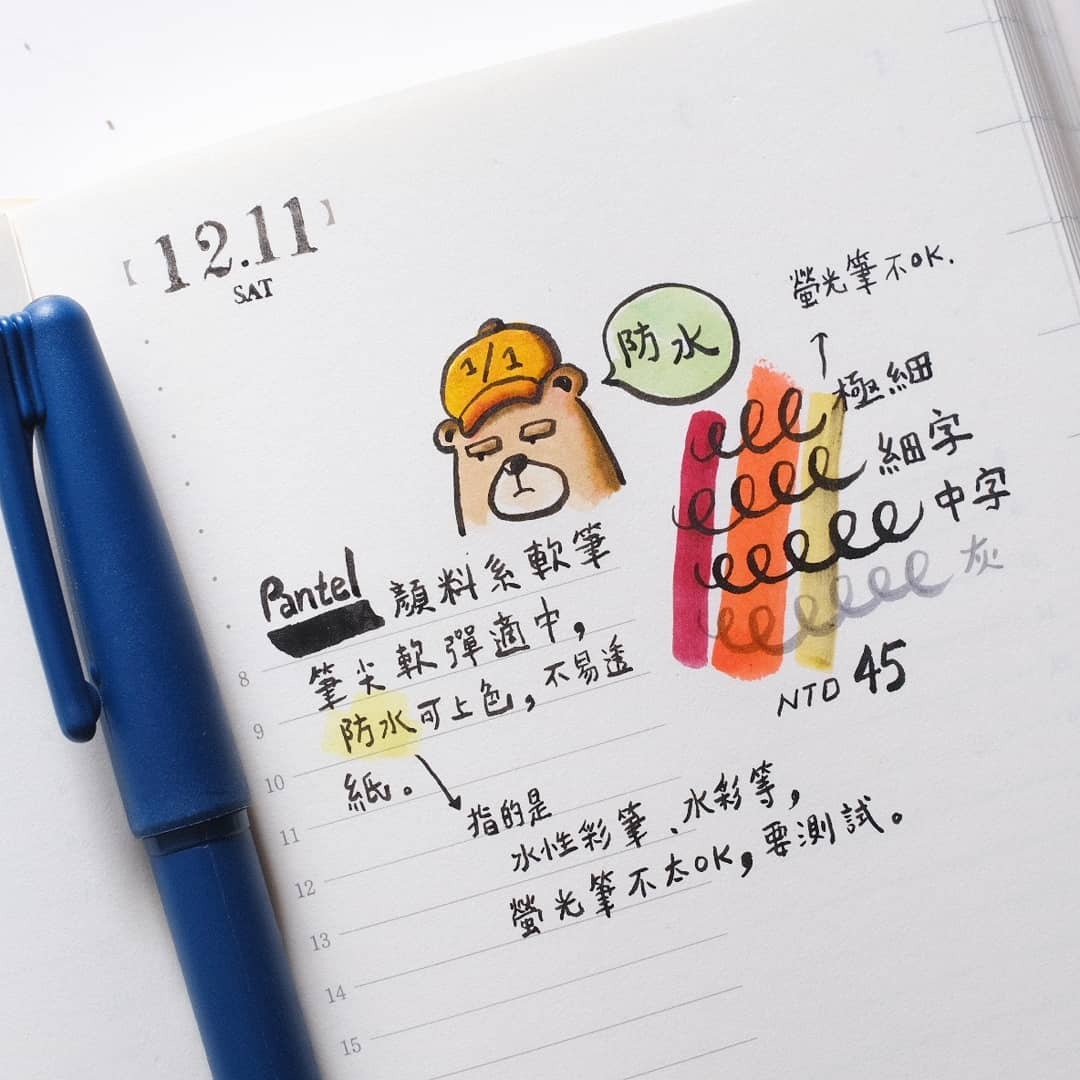 【12.11】
SAT
1/1
防水
螢光筆不OK.
極細
細字
中字
灰
NTD 45
Pantel 顏料系軟筆
筆尖軟彈適中，
防水可上色，不易透
紙。
指的是
水性彩筆、水彩等，
螢光筆不太OK，要測試。
8
9
10
11
12
13
14
15